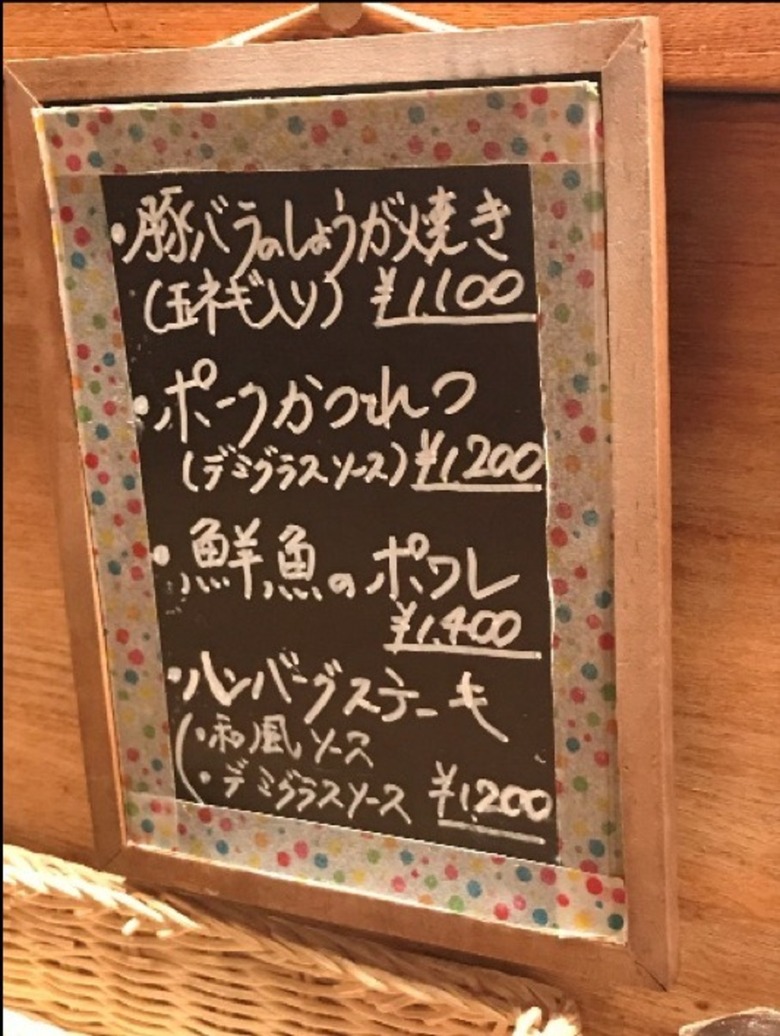 ・豚バラのしょうが焼き
(玉ネギ入り) ¥1,100
・ポークかつれつ
(デミグラスソース) ¥1,200
・鮮魚のポワレ
¥1,400
・ハンバーグステーキ
(・和風ソース
・デミグラスソース ¥1,200